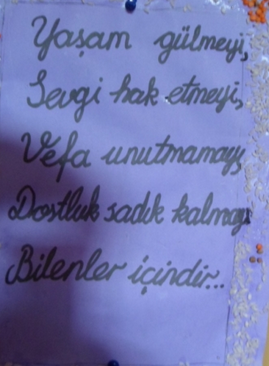 Yaşam gülmeyi,
Sevgi hak etmeyi,
Vefa unutmamayı,
Dostluk sadık kalmayı
Bilenler içindir...